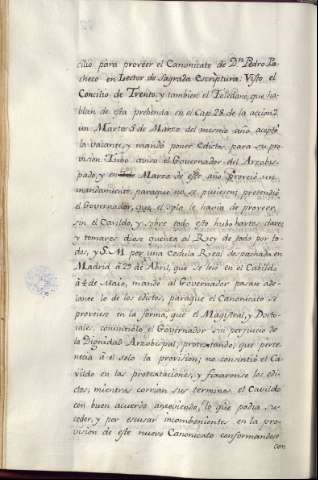 cilio para proveer el Canonicato de Dn. Pedro Pa-
checo en Lector de Sagrada Escriptura: Visto el
Concilio de Trento, y tambien el Toledano, que ha-
blan de esta prebenda en el Cap. 28. de la
un Martes 5 de Marzo del mesmo año, acepto
la vacante, y mandó poner Edictos para su pro-
vision. Tubo aviso el Governador del Arzobis-
pado, y en de Marzo de este año proveió un
mandamiento, paraque no se pusiesen, pretendió
el Governador, que el solo le havia de proveer
sin el Cavildo, y sobre esto hubo hartos
y tomares dióse quenta al Rey de todo por to-
dos, y S. M. por una Cedula Real despachada en
Madrid à 25 de Abril, que se leió en el Cabildo
à 4 de Maio, mandó al Governador pasase ade-
lante lo de los edictos, paraque el Canonicato se
proveiese en la forma, que el Magistral, y Docto-
rale, consintiólo el Governador sin perjuicio de
la Dignidad Arzobispal, protextando, que perte-
necia à el solo la provision, no consintió el Ca-
vildo en las protextaciones, y fixaronse los edi-
ctos; mientras corrian sus terminos el Cavildo
con buen acuerdo anteviendo, lo que podia su-
ceder, y por escusar incombenientes en la pro-
vision de este nuevo Canonicato conformandose
con